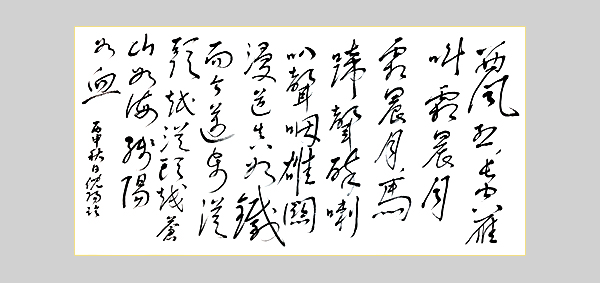 西風烈長空雁
叫霜晨月
霜晨月馬
蹄聲碎喇
叭聲咽雄關
漫道真如鐵
而今邁步從
頭越從頭越蒼
山如海殘陽
如血
丙申秋日倪